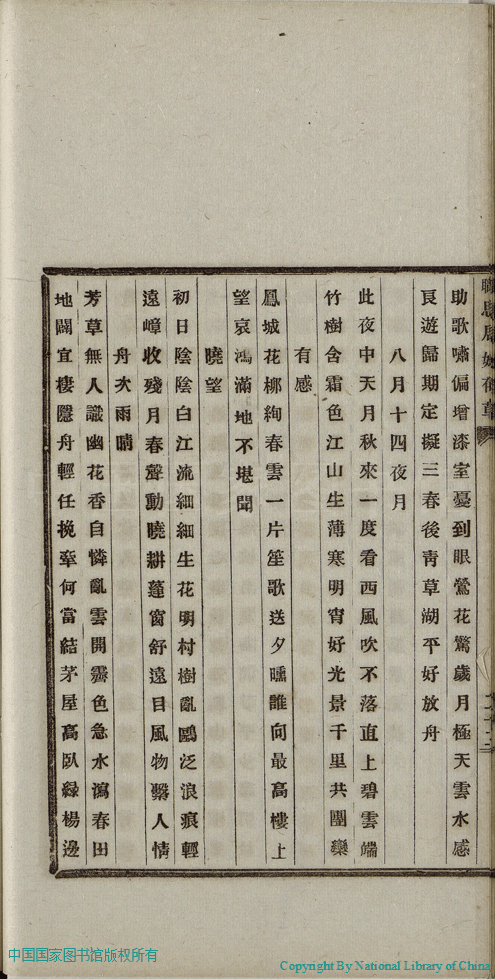 助歌嘯偏增漆室憂到眼鶯花驚歲月極天雲水感
良遊歸期定擬三春後靑草湖平好放舟
八月十四夜月
此夜中天月秋來一度看西風吹不落直上碧雲端
竹樹含霜色江山生薄寒明宵好光景千里共團欒
有感
鳳城花柳絢春雲一片笙歌送夕曛誰向最高樓上
望哀鴻滿地不堪聞
曉望
初日陰陰白江流細細生花明村樹亂鷗泛浪痕輕
遠嶂收殘月春聲動曉耕蓬窗舒遠目風物繫人情
舟次雨晴
芳草無人識幽花香自憐亂雲開霽色急水瀉春田
地闢宜棲隱舟輕任挽牽何當結茅屋高臥綠楊邊
中国国家图书馆版权所有
Copyright By National Library of China